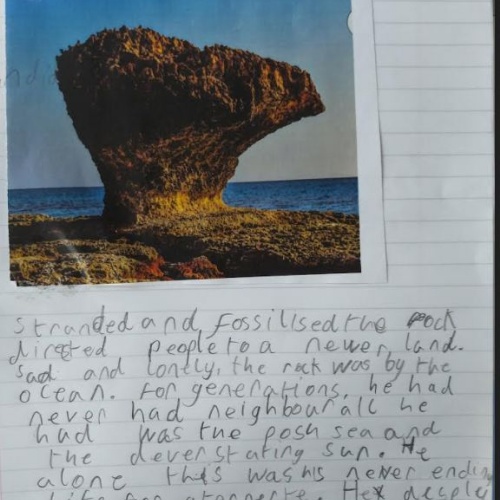 stranded and fossilised the rock
directed people to a newer land.
Sad and lonely, the rock was by the
ocean. For generations, he had
never had neighbour all he
had was the posh sea and
the deverstating sun. He
alone this was his never ending
He